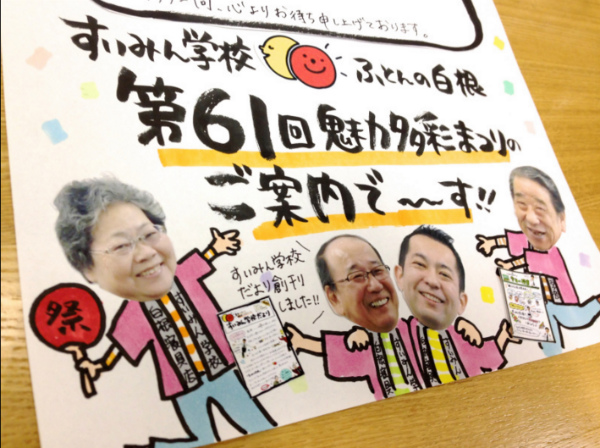 心よりお待ち申し上げております。
すいみん学校 ふとんの白根
第61回魅力多彩まつりの
ご案内で〜〜す!!
すいみん学校
だより創刊
しました!!
祭
すいみん学校だより
すいみん学校